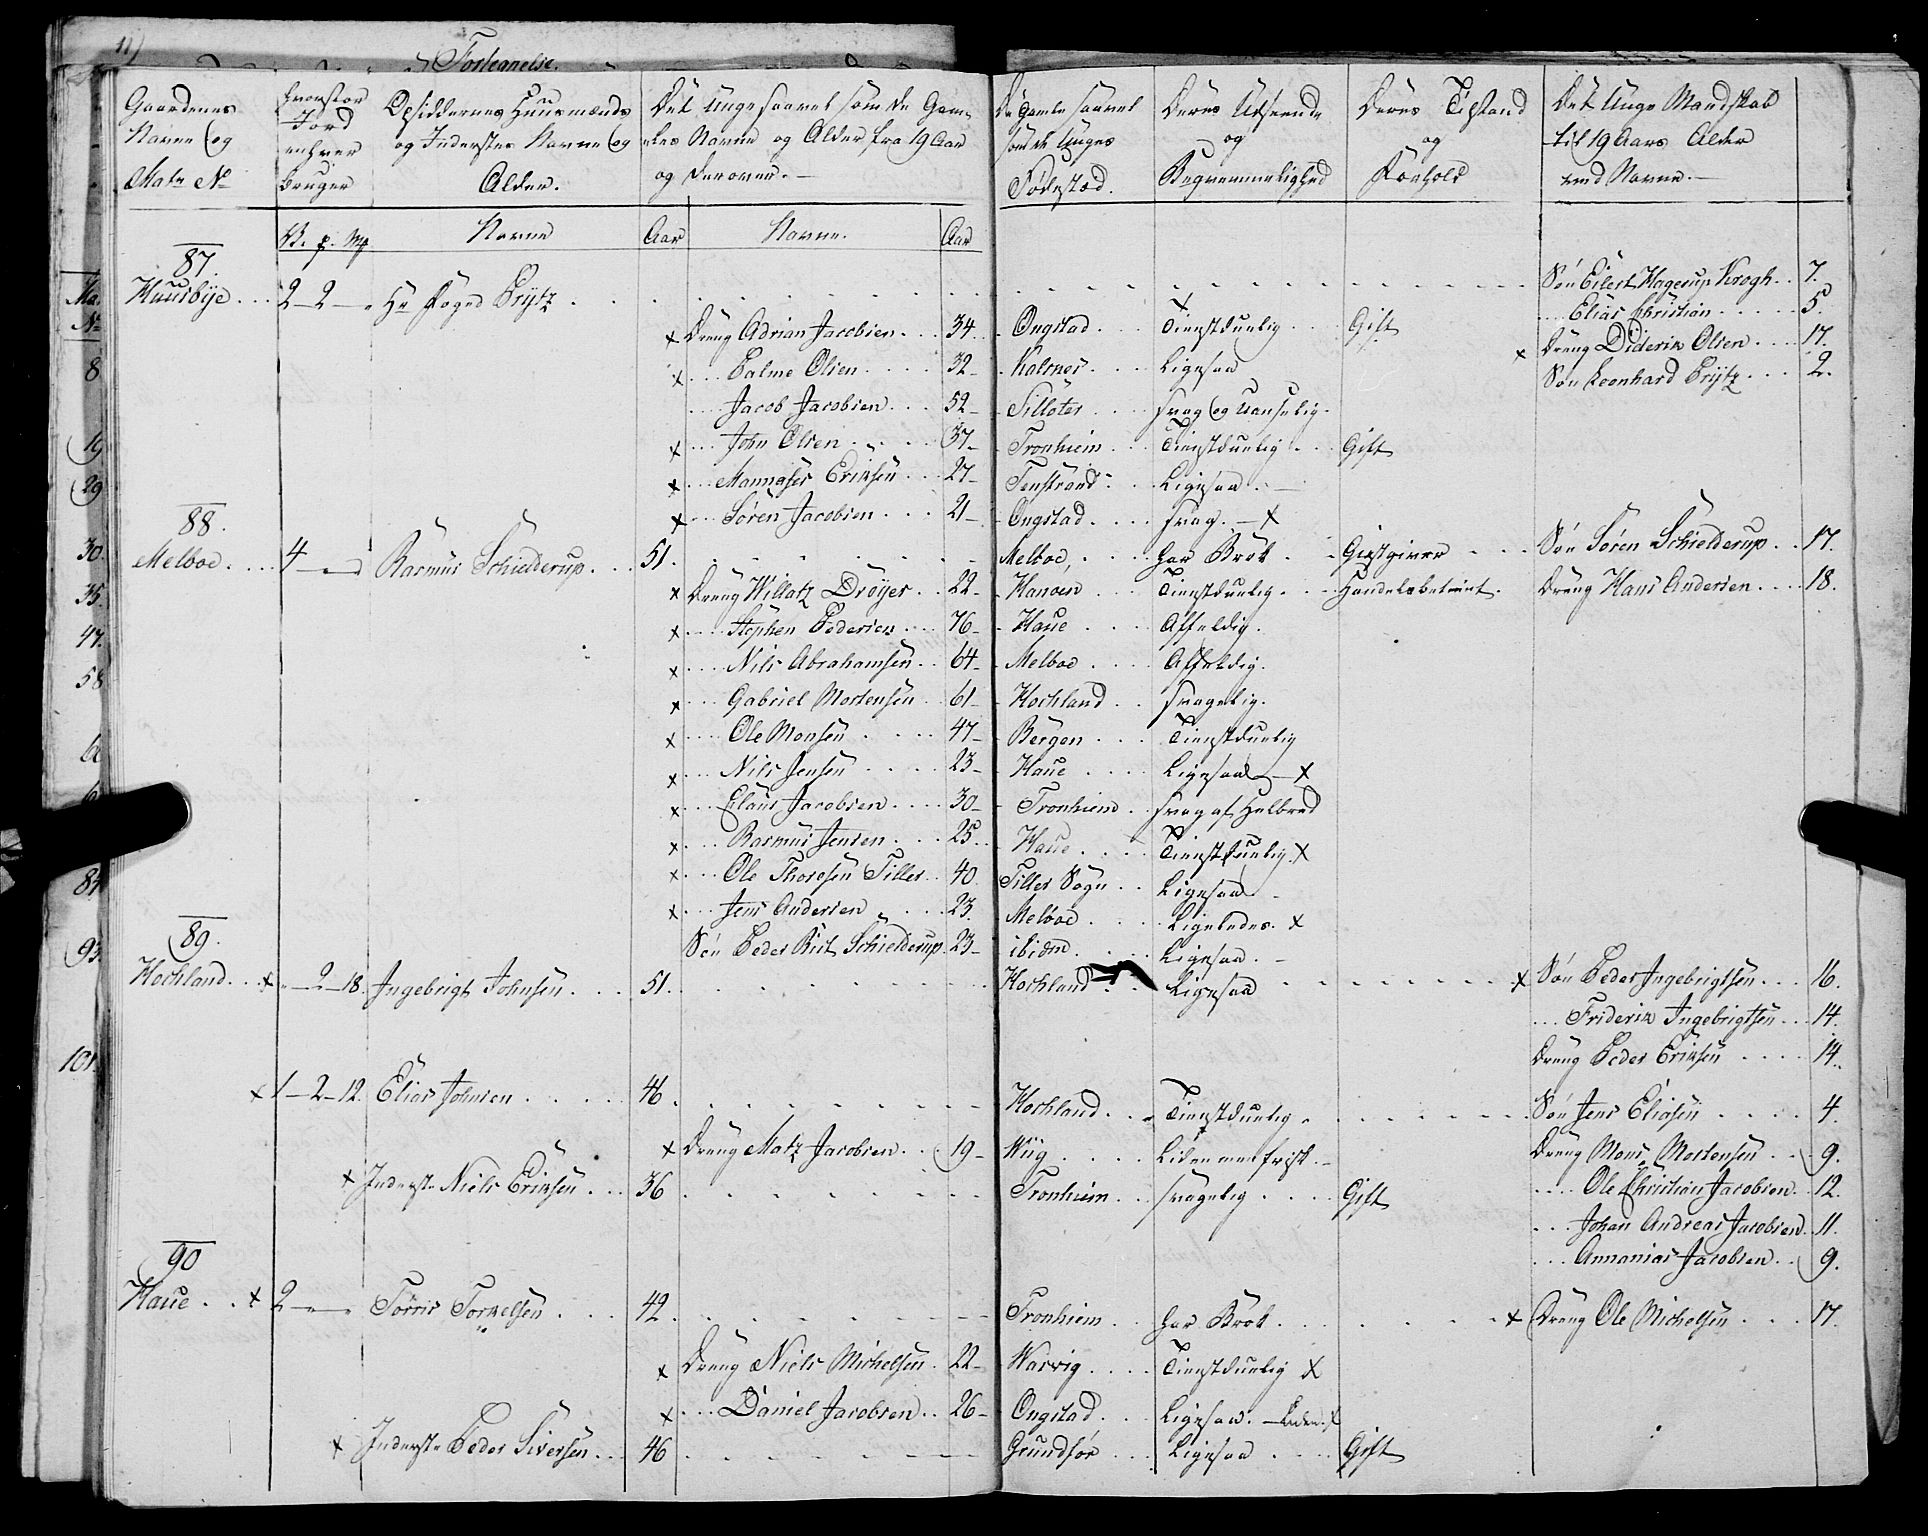 11)
Fortegnelse.
Gaardenes Navne og Matr No | Hvorstor Jord enhver bruger | Opsiddernes Huusmænds og Inderstes Navne og Alder. | Det Unge saavel som de Gamles Navne og Alder fra 19 Aar og derover.— | De Gamle saavel som de Unges Fødested. | Deres Udseende og Beqvemmelighed | Deres Tilstand og Forhold | Det Unge Mandskab til 19 Aars Alder ved Navne.—
V. p. Mk | Navne | Aar | Navne. | Aar
87.
Huusbye . . . 2 - 2 - " Hr Foged Prytz . . . Søn Eilert Hagerup Krogh . . 7.
. . . Elias Christian . . . 5.
x Dreng Adrian Jacobsen . . . 34 . Ongstad . . . Tienstduelig . . . Gift
x Dreng Diderik Olsen . . . 17.
x . . . Palme Olsen . . . 32 - Kalsnes . . . Ligesaa
Søn Leonhard Prytz . . . 2.
. . . Jacob Jacobsen . . . 52 - Silloter . . . svag og Uanselig.
x . . . John Olsen . . . 37 - Tronhiem . . . Tienstduelig . . . Gift
x . . . Mannases Eriksen . . . 27 - Tenstrand . . . Ligesaa . —
x . . . Søren Jacobsen . . . 21 - Ongstad . . . svag. — x
88.
Melboe . . . 4 - " - " Rasmus Schielderup . . . 51. . . . Melboe, . . . har Brok . . . Giestgiver . . . Søn Søren Schielderup . . 17.
x Dreng Willatz Dröyer . . 22 - Hanøen . . . Tienstduelig . . . Handelsbetient . Dreng Hans Andersen . . . 18.
x . . . Stephen Pedersen . . . 76 - Haue . . . Affeldig.
x . . . Nils Abrahamsen . . 64 - Melboe . . . Affeldig.
x . . . Gabriel Mortensen . . 61 - Hochland . . svagelig.
x . . . Ole Monsen . . . 47 - Bergen . . . Tienstduelig
x . . . Nils Jensen . . . 23 - Haue . . . Ligesaa — x
x . . . Claus Jacobsen . . . 30 - Tronhiem . svag af Helbred
x . . . Rasmus Jensen . . . 25 . . Haue . . . Tienstduelig. x
x . . . Ole Thoresen Tiller . . 40 Tiller Sogn . . Ligesaa -
x . . . Jens Andersen . . . 23. Meloe . . . Ligeledes. x
Søn Peder Bist Schielderup 23 - ibidm . . . Ligesaa. -
89.
Hochland . . x " - 2 - 18. Ingebrigt Johnsen . . . 51. . . . Hochland . . Ligesaa . . . x Søn Peder Ingebrigtsen . . . 16.
. . . Friderik Ingebrigtsen . . . 14.
Dreng Peder Eriksen . . . 14.
x 1 - 2 - 12. Elias Johnsen . . . 46 . . . Hochland . . . Tienstduelig . . . Søn Jens Eliasen . . . 4
x Dreng Matz Jacobsen . . . 19 - Wiig . . . Liden men frisk . —
Dreng Mons Mortensen . . 9.
x Inderste Niels Eriksen . . . 36 . . . Tronhiem . . svagelig . . . Gift
. . . Ole Christian Jacobsen . 12.
. . . Johan Andreas Jacobsen . 11.
. . . Annanias Jacobsen . . 9.
90
Haue . . x 2 - " - " Törris Torkelsen . . . 42. . . . Tronhiem . . har Brok . . . x Dreng Ole Michelsen . . . 17.
x Dreng Niels Michelsen . 22 - Warvig . . . Tienstduelig x
x . . . Daniel Jacobsen . . 26 - Ongstad . . . Ligesaa. — Liden. x
x Inderste Peder Siversen . . . 46 . . . Grundför . . . Ligesaa . . . Gift
Ma.
No
8
19
29
30.
35.
47.
58
84
93.
101